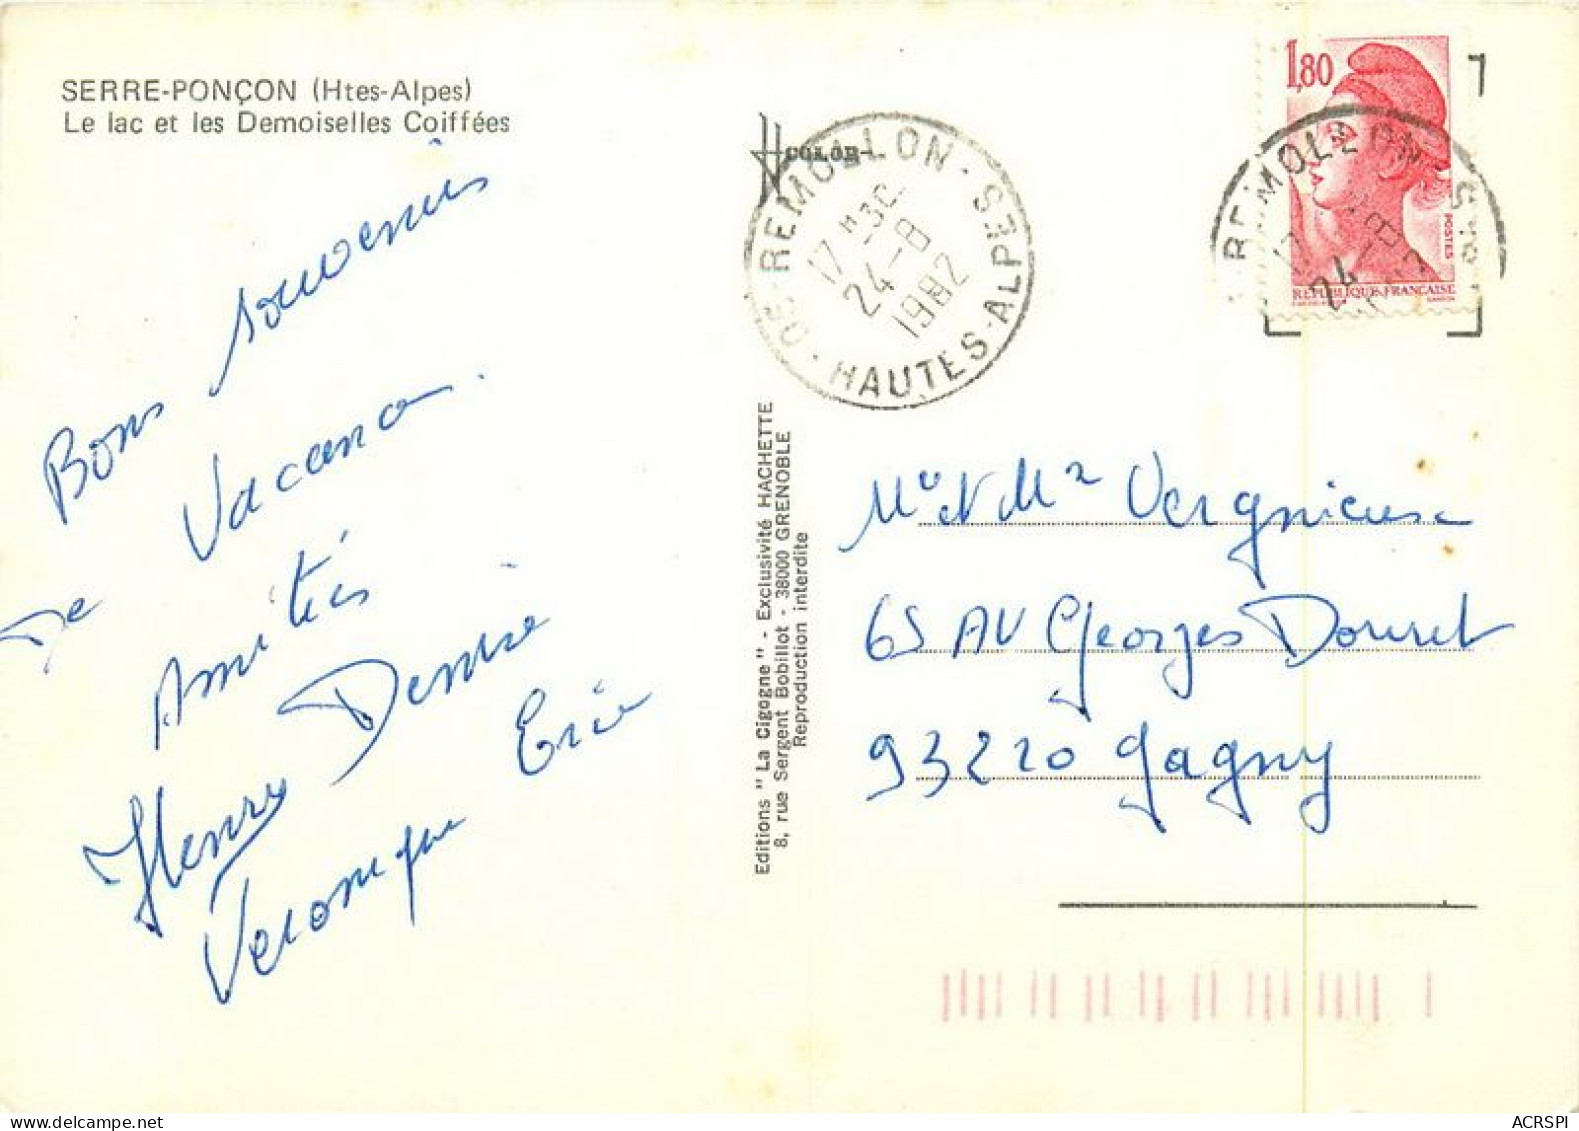 SERRE-PONÇON (Htes-Alpes)
Le lac et les Demoiselles Coiffées
Bons souvenirs
de Vacances.
Amitiés
Henry Denise
Veronique Eric
COLOR
05-REMOLLON-HAUTES-ALPES
17 H30
24-8
1982
1,80
POSTES
REPUBLIQUE FRANCAISE
REMOLLON
17
24-8
Editions "La Cigogne" - Exclusivité HACHETTE
8, rue Sergent Bobillot - 38000 GRENOBLE
Reproduction interdite
65 AV Georges
93220 Gagny
ACRSPI